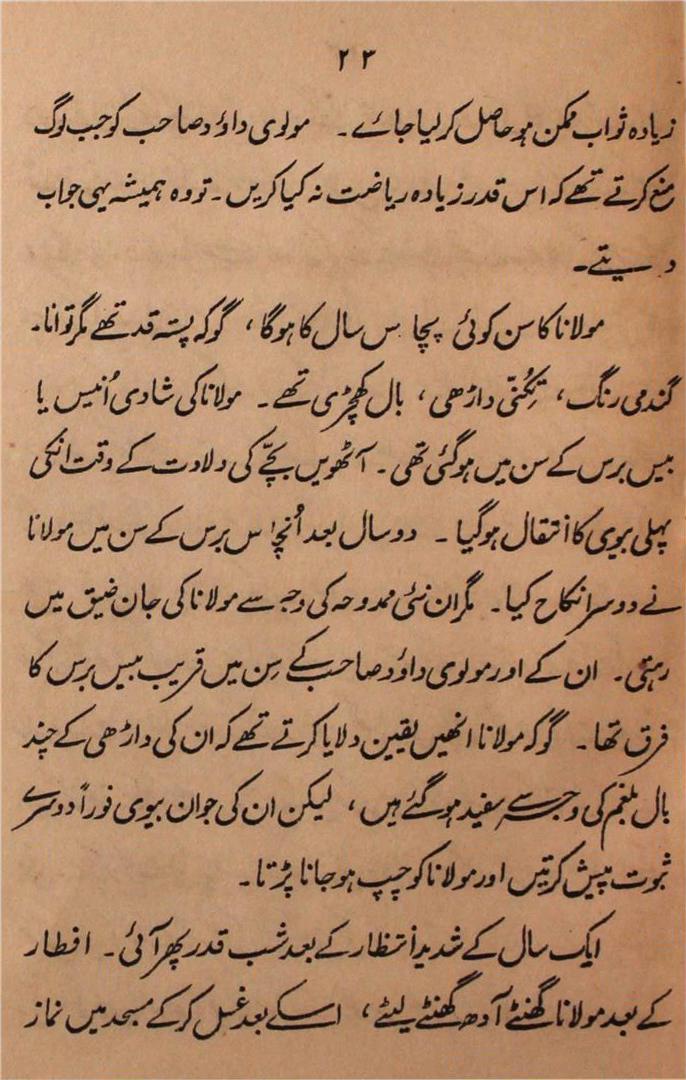 ۲۳
زیادہ ثواب ممکن ہو حاصل کر لیا جائے۔ مولوی داؤد صاحب کو جب لوگ
منع کرتے تھے کہ اس قدر زیادہ ریاضت نہ کیا کریں۔ تو وہ ہمیشہ یہی جواب
دیتے۔
مولانا کا سن کوئی پچاس سال کا ہوگا، گو کہ پستہ قد تھے مگر توانا۔
گندمی رنگ، تِکُنّی داڑھی، بال کھچڑی تھے۔ مولانا کی شادی اُنیس یا
بیس برس کے سن میں ہو گئی تھی۔ آٹھویں بچّے کی ولادت کے وقت انکی
پہلی بیوی کا انتقال ہو گیا۔ دو سال بعد اُنچاس برس کے سن میں مولانا
نے دوسرا نکاح کیا۔ مگر ان نئی ممدوحہ کی وجہ سے مولانا کی جان ضیق میں
رہتی۔ ان کے اور مولوی داؤد صاحب کے سِن میں قریب بیس برس کا
فرق تھا۔ گو کہ مولانا انھیں یقین دلایا کرتے تھے کہ ان کی داڑھی کے چند
بال بلغم کی وجہ سے سفید ہو گئے ہیں، لیکن ان کی جوان بیوی فوراً دوسرے
ثبوت پیش کرتیں اور مولانا کو چپ ہو جانا پڑتا۔
ایک سال کے شدید انتظار کے بعد شب قدر پھر آئی۔ افطار
کے بعد مولانا گھنٹے آدھ گھنٹے لیٹے، اسکے بعد غسل کر کے مسجد میں نماز